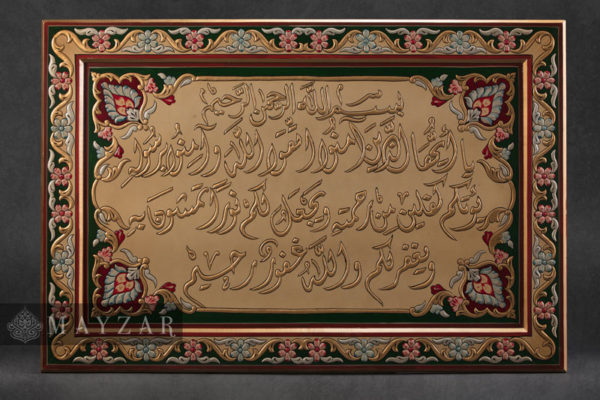 بسم الله الرحمن الرحيم
يا أيها الذين آمنوا اتقوا الله وآمنوا برسوله
يؤتكم كفلين من رحمته ويجعل لكم نورا تمشون به
ويغفر لكم والله غفور رحيم
MAYZAR